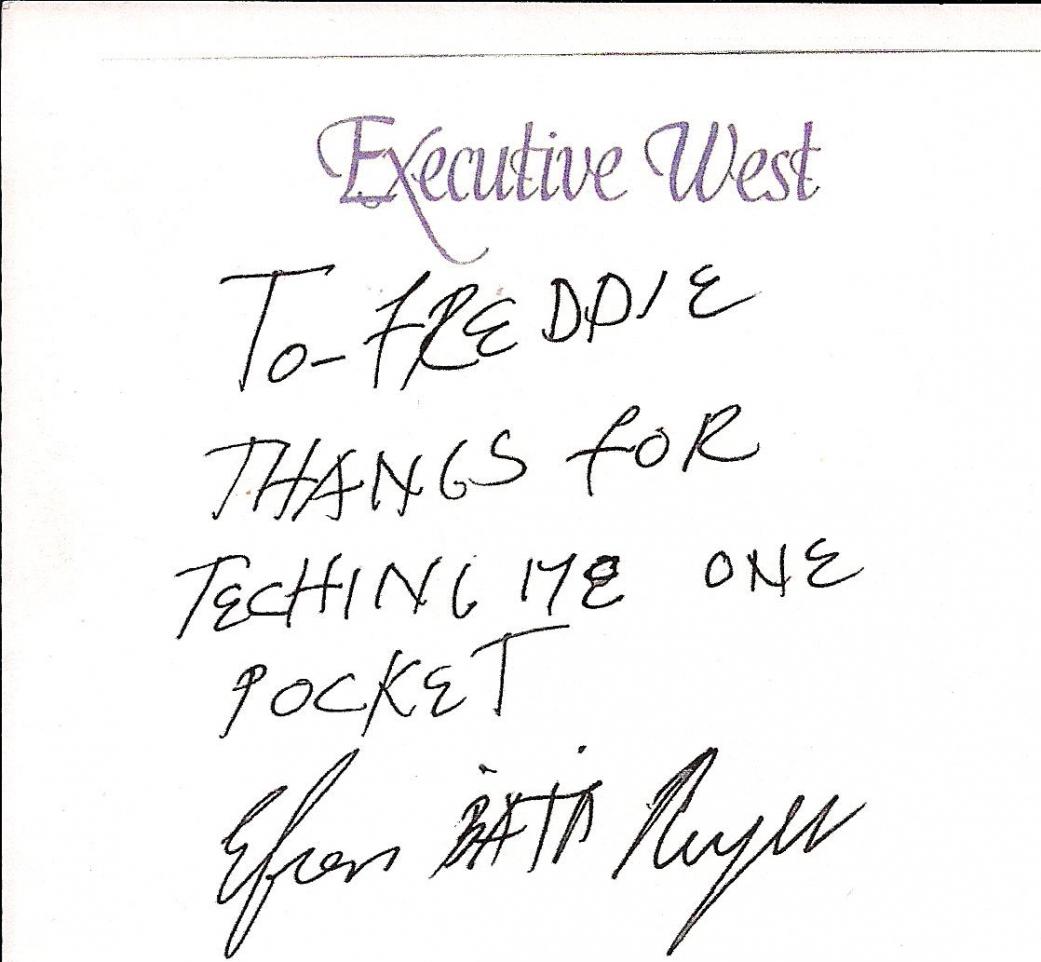 Executive West
To- FREDDIE
THANGS FOR
TECHING ME ONE
POCKET
Efren "BATA" Reyes